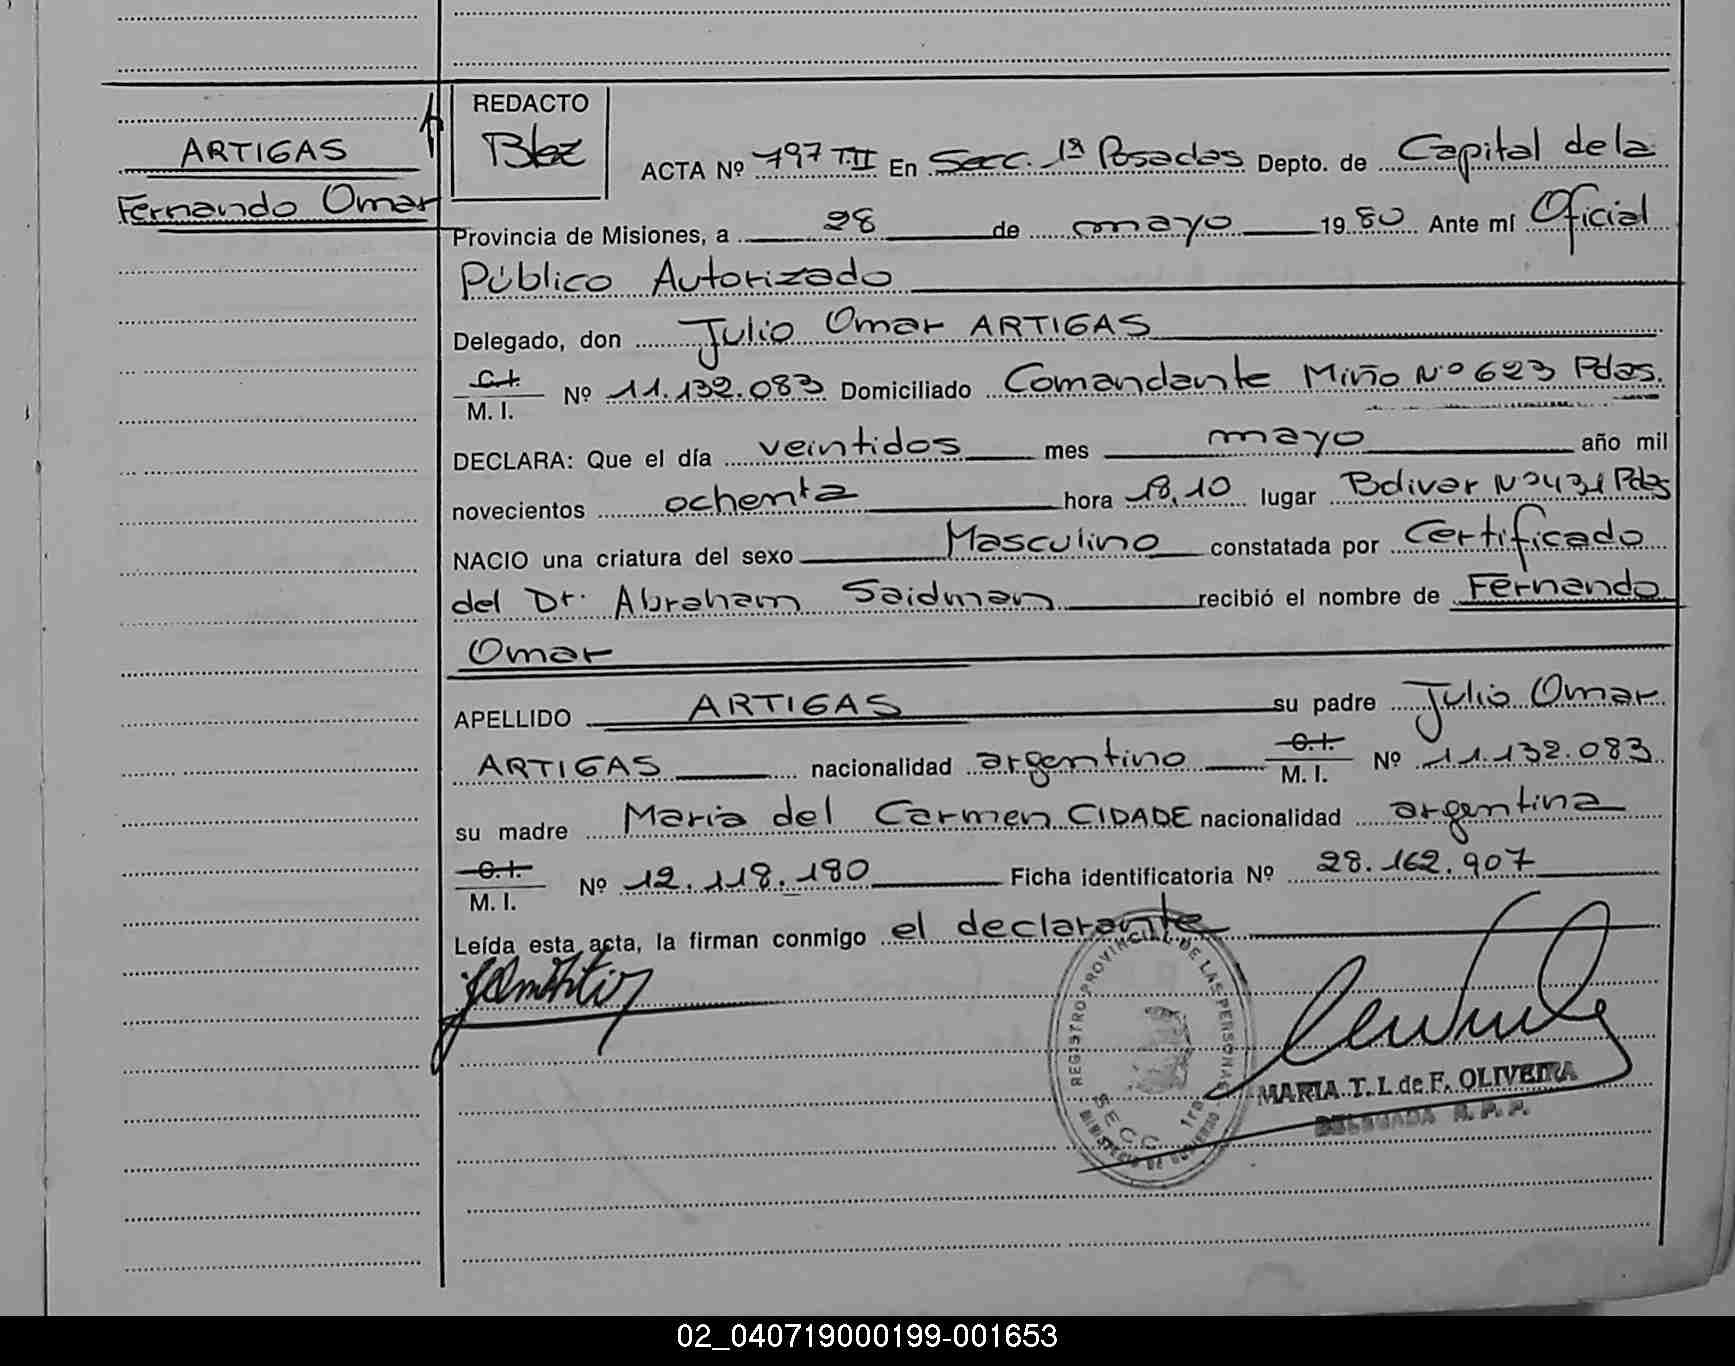 ARTIGAS
Fernando Omar
REDACTO
ACTA Nº 797 T.II En Secc. 1ª Posadas Depto. de Capital de la
Provincia de Misiones, a 28 de mayo 1980 Ante mí Oficial
Público Autorizado
Delegado, don Julio Omar ARTIGAS
C.I.
M. I. Nº 11.132.083 Domiciliado Comandante Miño Nº 623 Pdas.
DECLARA: Que el día veintidos mes mayo año mil
novecientos ochenta hora 18,10 lugar Bolivar Nº 431 Pdas
NACIO una criatura del sexo Masculino constatada por Certificado
del Dr. Abraham Saidman recibió el nombre de Fernando
Omar
APELLIDO ARTIGAS su padre Julio Omar
ARTIGAS nacionalidad argentino C.I.
M. I. Nº 11.132.083
su madre Maria del Carmen CIDADE nacionalidad argentina
C.I.
M. I. Nº 12.118.190 Ficha identificatoria Nº 28.162.907
Leída esta acta, la firman conmigo el declarante
REGISTRO PROVINCIAL DE LAS PERSONAS
SECC. 1ra
MINISTERIO DE GOBIERNO
MARIA T. L. de F. OLIVEIRA
DELEGADA R. P. P.
02_040719000199-001653